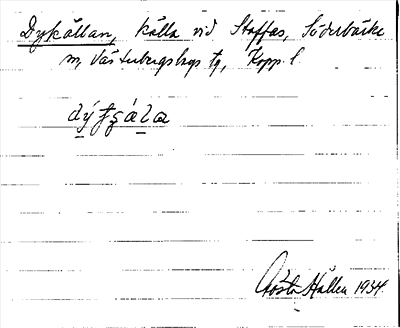 Dykällan, källa vid Staffas, Söderbärke
sn, Västerbergslags tg, Kopp. l.
Gösta Hallen 1934.